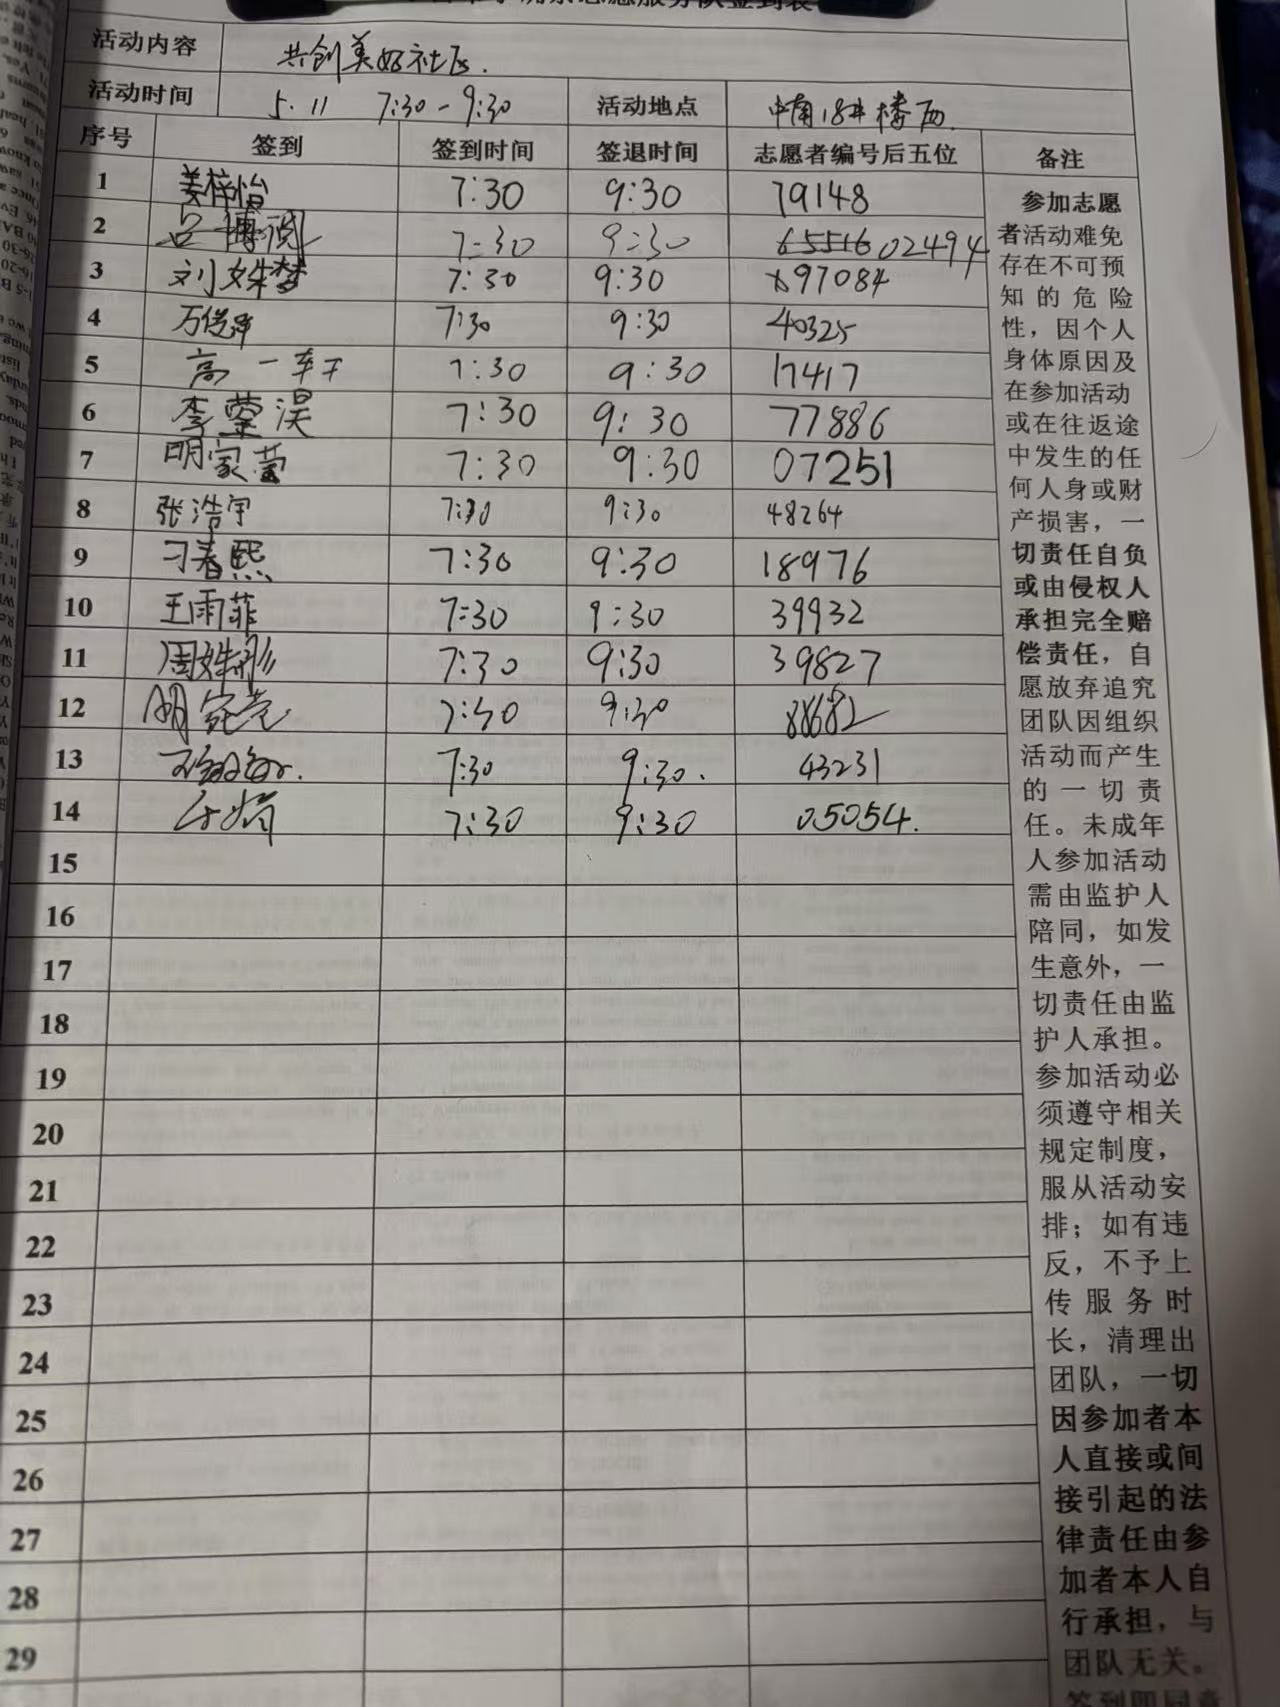 志愿服务队签到表
活动内容 共创美好社区.
活动时间 5.11 7:30-9:30 活动地点 中南18#楼西.
序号 签到 签到时间 签退时间 志愿者编号后五位 备注
1 姜梓怡 7:30 9:30 79148
2 吕博 7:30 9:30 65516 02494
3 刘姝梦 7:30 9:30 97084
4 万 7:30 9:30 40325
5 高一轩 7:30 9:30 17417
6 李蓥淏 7:30 9:30 77886
7 明家莹 7:30 9:30 07251
8 张浩宇 7:30 9:30 48264
9 刁春熙 7:30 9:30 18976
10 王雨菲 7:30 9:30 39932
11 周姝彤 7:30 9:30 39827
12 明 7:30 9:30 88682
13 7:30 9:30. 43231
14 7:30 9:30 05054.
15
16
17
18
19
20
21
22
23
24
25
26
27
28
29
参加志愿
者活动难免
存在不可预
知的危险
性，因个人
身体原因及
在参加活动
或在往返途
中发生的任
何人身或财
产损害，一
切责任自负
或由侵权人
承担完全赔
偿责任，自
愿放弃追究
团队因组织
活动而产生
的一切责
任。未成年
人参加活动
需由监护人
陪同，如发
生意外，一
切责任由监
护人承担。
参加活动必
须遵守相关
规定制度，
服从活动安
排；如有违
反，不予上
传服务时
长，清理出
团队，一切
因参加者本
人直接或间
接引起的法
律责任由参
加者本人自
行承担，与
团队无关。
签到即同意